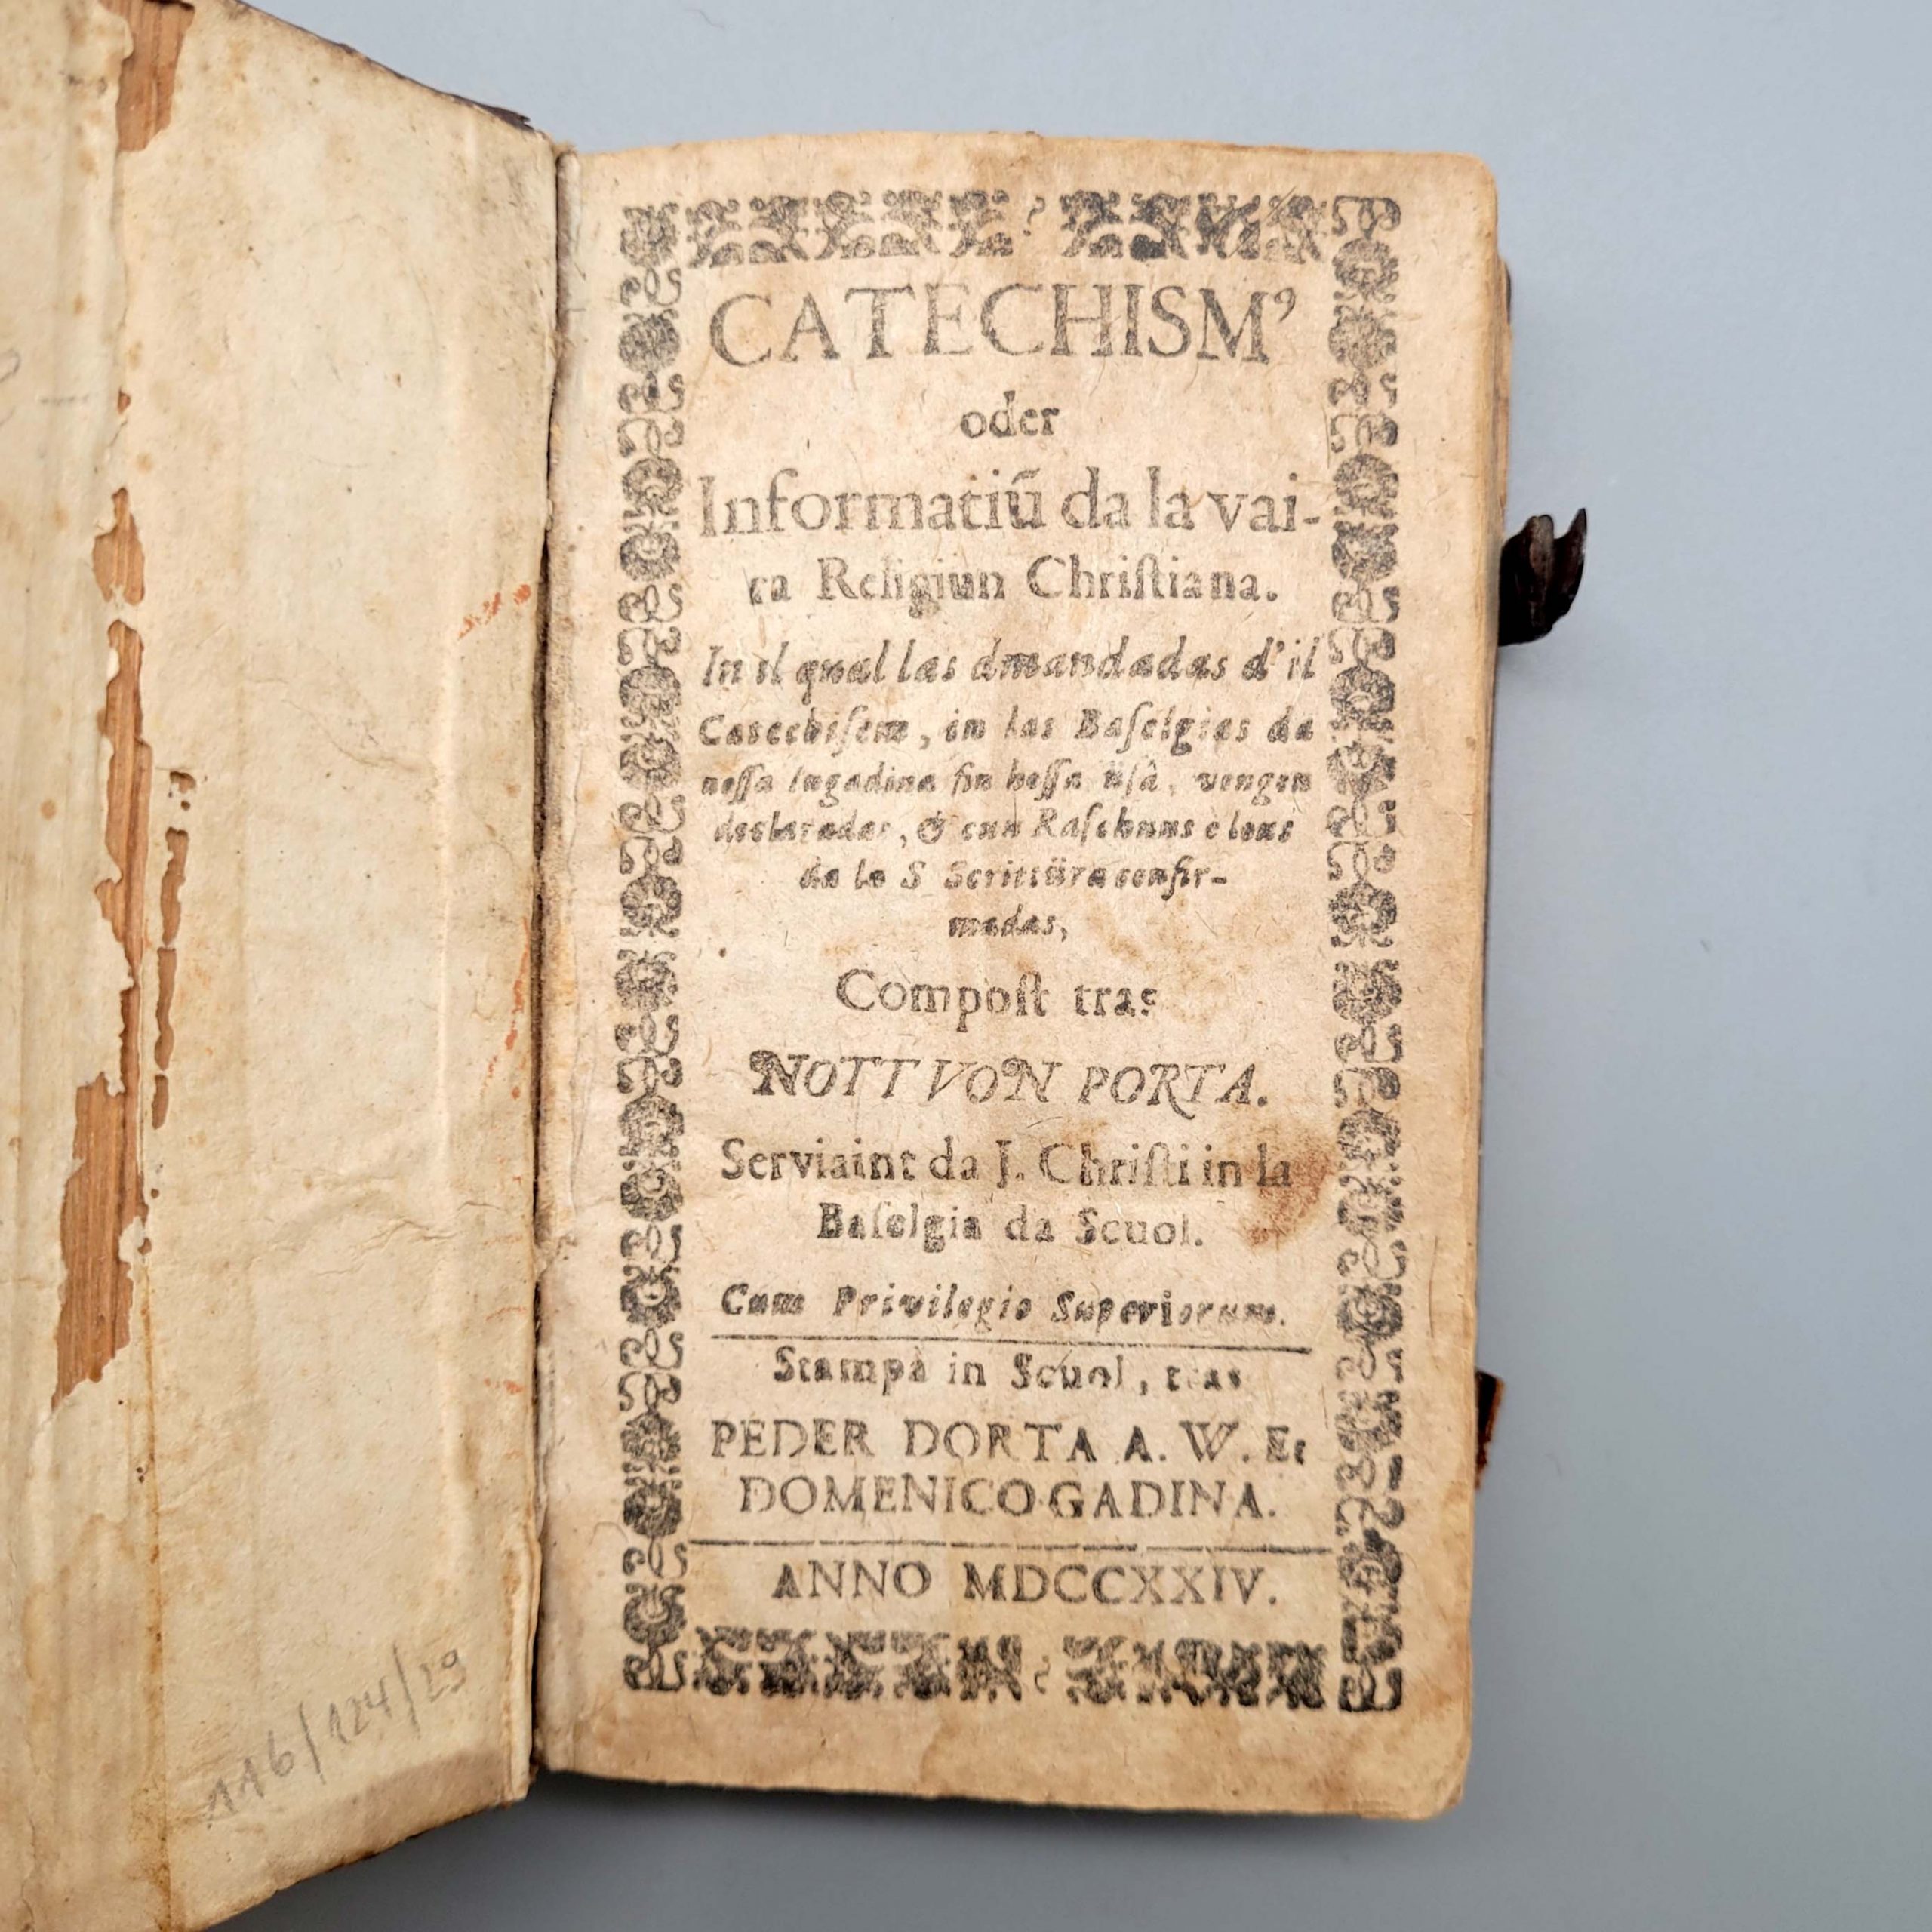 CATECHISMꝰ
oder
Informatiũ da la vai-
ra Religiun Chriſtiana.
In il qual las dmandadas d'il
Catechiſem, in las Baſelgias da
noſſa Ingadina ſin hoſſa üſà, vengen
declaradas, & cun Raſchuns è lous
da la S Scrittüra confir-
madas,
Compoſt tras
NOTT VON PORTA.
Serviaint da J. Chriſti in la
Baſelgia da Scuol.
Cum Privilegio Superiorum.
Stampà in Scuol, tras
PEDER DORTA A. W. Et
DOMENICO GADINA.
ANNO MDCCXXIV.
116/124/29